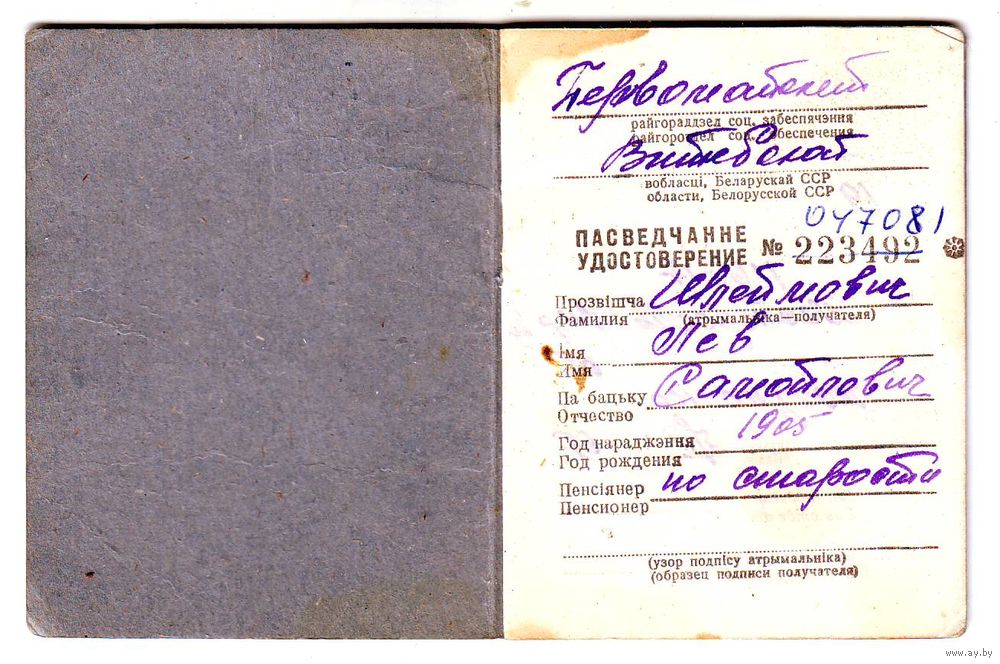 Первомайский
райгораддзел соц. забеспячэння
райгоротдел соц. обеспечения
Витебской
вобласці, Беларускай ССР
области, Белорусской ССР
047081
ПАСВЕДЧАННЕ
УДОСТОВЕРЕНИЕ № 223492
Прозвішча Шлеймович
Фамилия (атрымальніка—получателя)
Імя Лев
Имя
Па бацьку Самойлович
Отчество
Год нараджэння 1905
Год рождения
Пенсіянер по старости
Пенсионер
(узор подпісу атрымальніка)
(образец подписи получателя)
www.ay.by